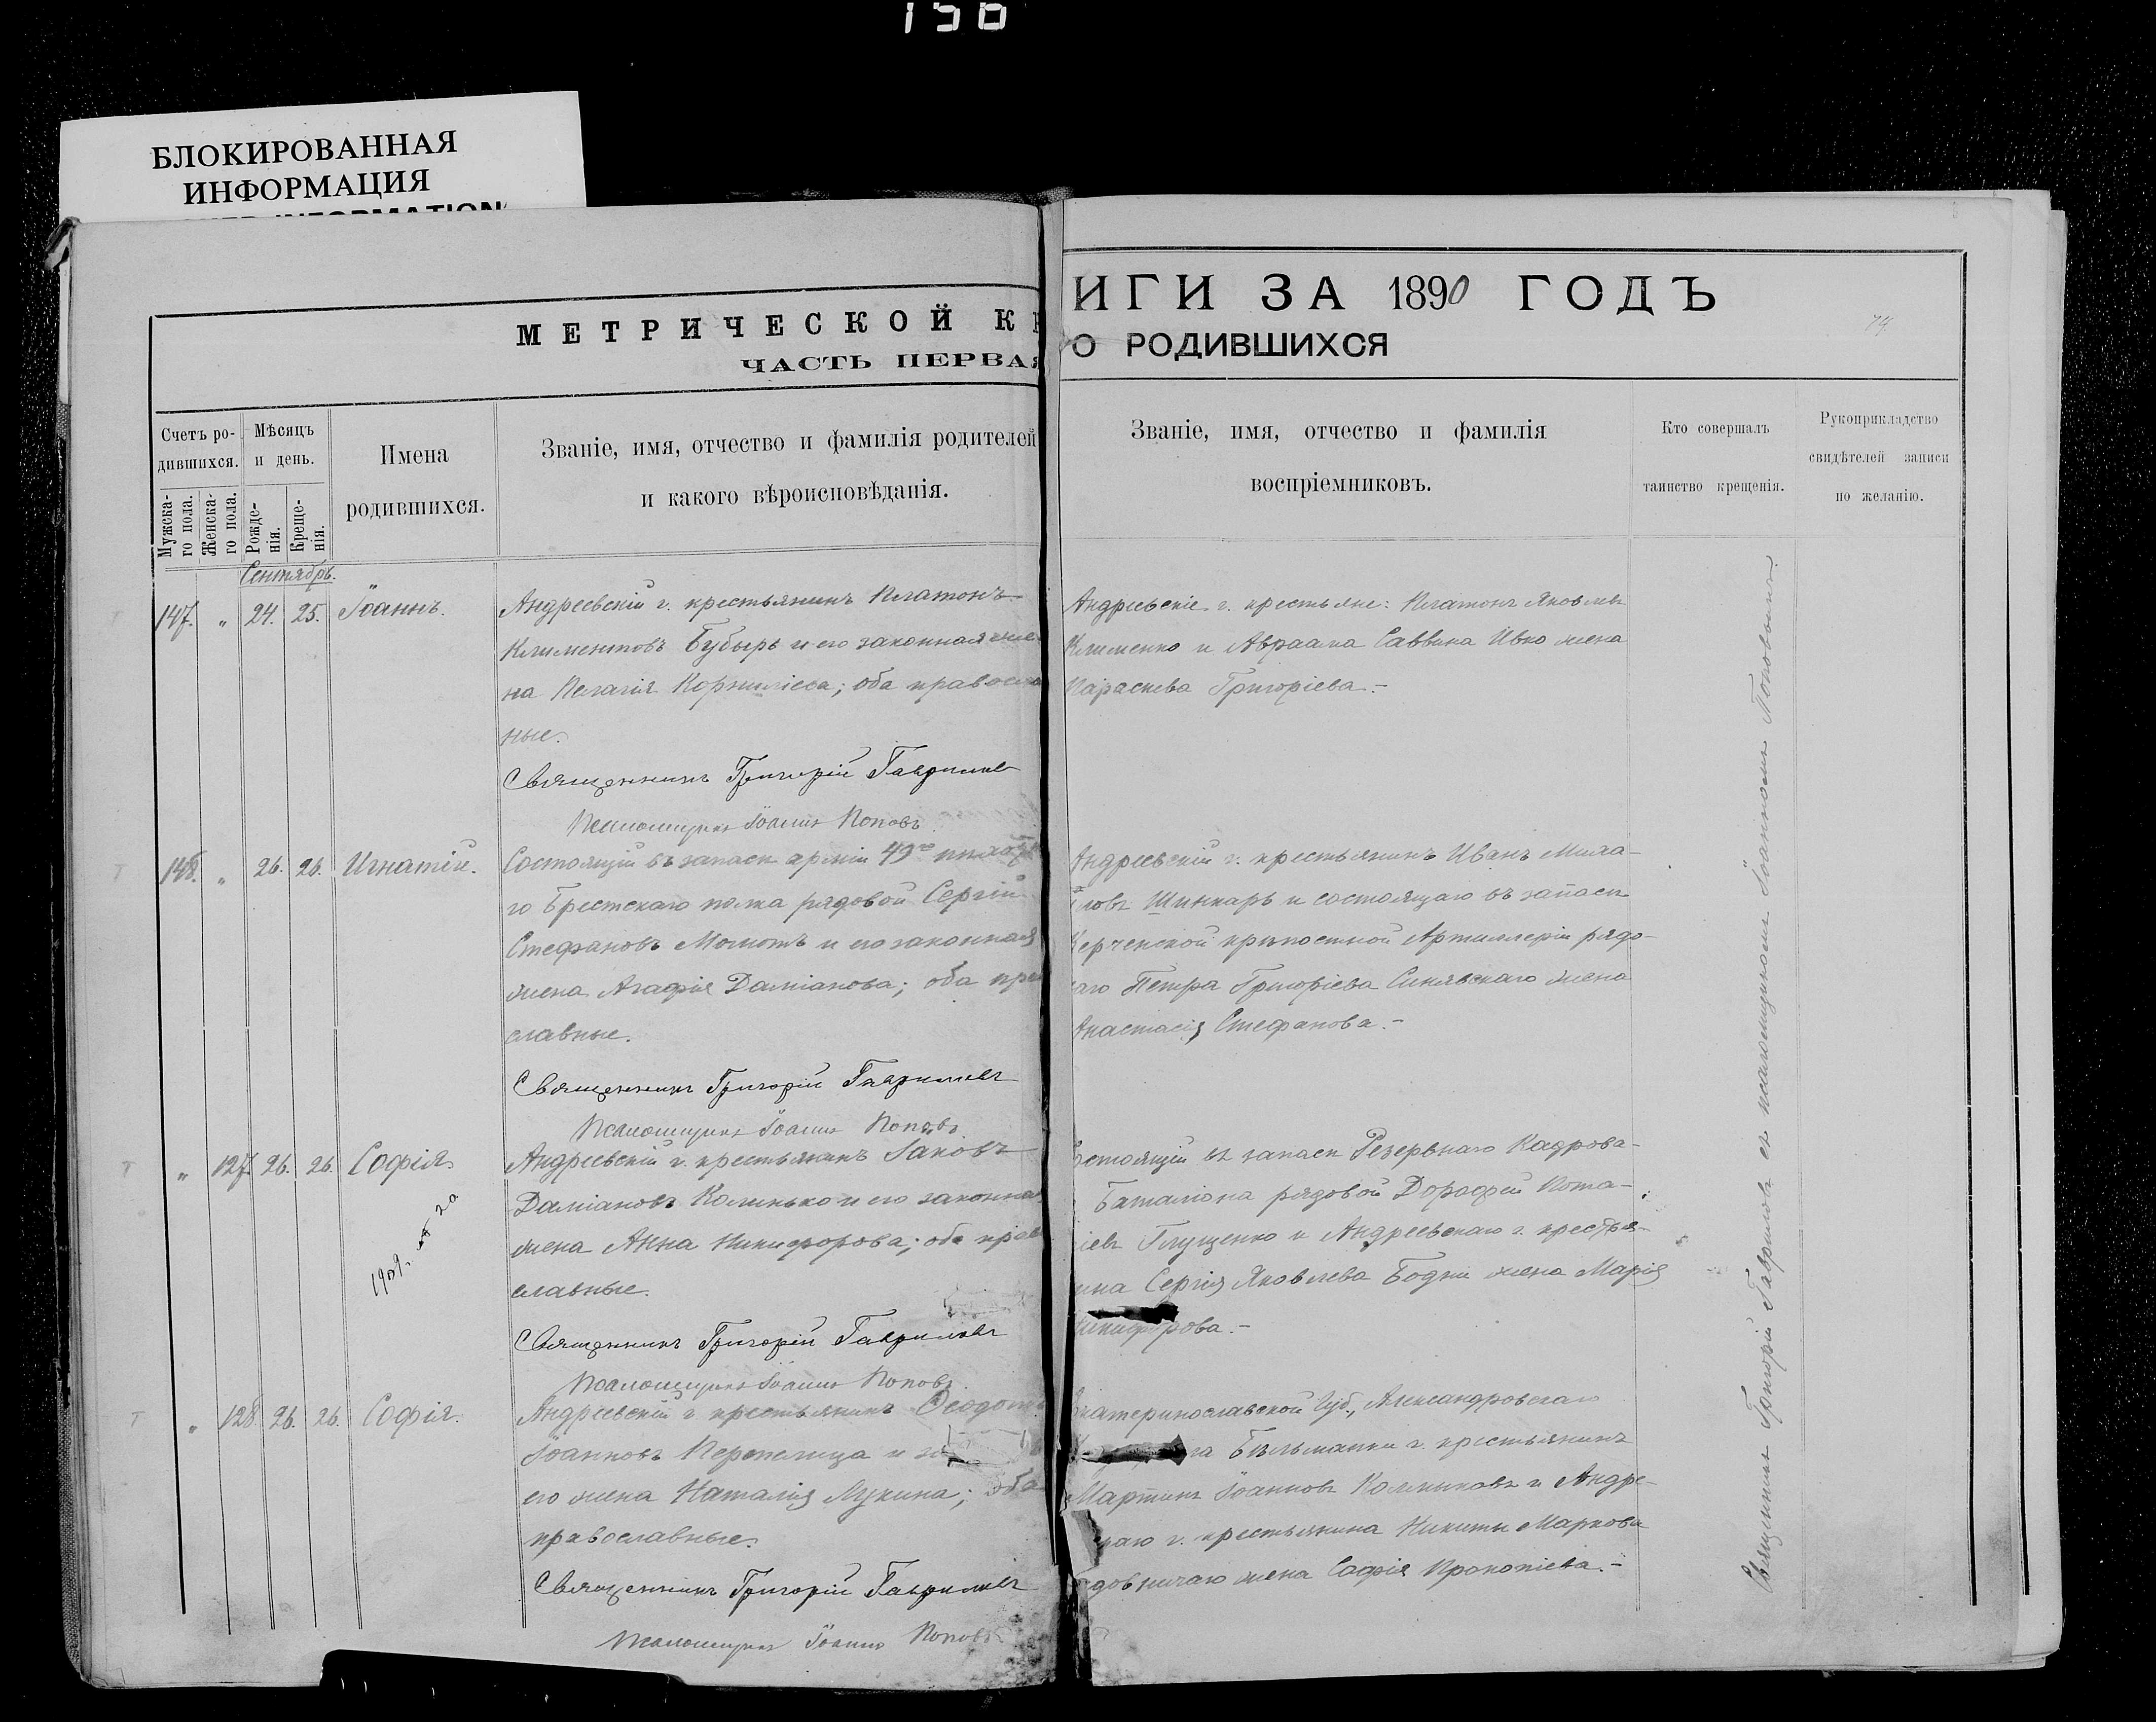 156
БЛОКИРОВАННАЯ
ИНФОРМАЦИЯ
МЕТРИЧЕСКОЙ К
ЧАСТЬ ПЕРВАЯ
ИГИ ЗА 1890 ГОДЪ
О РОДИВШИХСЯ
74
Счетъ ро-
дившихся.
Мужска-
го пола.
Женска-
го пола.
Мѣсяцъ
и день.
Рожде-
нія.
Креще-
нія.
Имена
родившихся.
Званіе, имя, отчество и фамилія родителей
и какого вѣроисповѣданія.
Званіе, имя, отчество и фамилія
воспріемниковъ.
Кто совершалъ
таинство крещенія.
Рукоприкладство
свидѣтелей записи
по желанію.
Сентябрь.
147. " 24. 25. Іоаннъ.
Андреевскій г. крестьянинъ Платонъ
Климентовъ Бубырь и его законная же
на Пелагія Корниліева; оба правосла
ные.
Священникъ Григорій Гавриловъ
Псаломщикъ Іоаннъ Поповъ
Андреевскіе г. крестьяне: Платонъ Яковлевъ
Клименко и Авраама Саввина Ивко жена
Параскева Григоріева.-
148. " 26. 26. Игнатій.
Состоящій въ запасѣ арміи 49го пѣхотна
го Брестскаго полка рядовой Сергій
Стефановъ Момотъ и его законная
жена Агафія Даміанова; оба пра
славные.
Священникъ Григорій Гавриловъ
Псаломщикъ Іоаннъ Поповъ
Андреевскій г. крестьянинъ Иванъ Миха-
иловъ Шинкарь и состоящаго въ запасѣ
Керченской крѣпостной Артиллеріи рядо-
ваго Петра Григоріева Синявскаго жена
Анастасія Стефанова.-
" 127. 26. 26. Софія.
Андреевскій г. крестьянинъ Іаковъ
Даміановъ Колинько и его законна
жена Анна Никифорова; оба прав
славные.
Священникъ Григорій Гавриловъ
Псаломщикъ Іоаннъ Поповъ
Состоящій въ запасѣ Резервнаго Кадрова-
Баталіона рядовой Дорофей Пота-
піевъ Глущенко и Андреевскаго г. крестья-
нина Сергія Яковлева Бодни жена Марія
Никифорова.-
" 128. 26. 26. Софія.
Андреевскій г. крестьянинъ Ѳеодотъ
Іоанновъ Перепелица и
его жена Наталія Лукина; оба
православные.
Священникъ Григорій Гавриловъ
Псаломщикъ Іоаннъ Поповъ
Екатеринославской Губ., Александровскаго
Бѣльманки г. крестьянинъ
Мартинъ Іоанновъ Колниковъ и Андре-
скаго г. крестьянина Никиты Маркова
жена Софія Прокопіева.-
Священникъ Григорій Гавриловъ съ псаломщикомъ Іоанномъ Поповымъ.